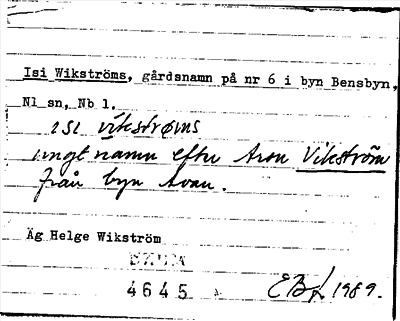 Isi Wikströms, gårdsnamn på nr 6 i byn Bensbyn,
Nl sn, Nb l.
isi vikstrøms
ungt namn efter Aron Vikström
från byn Avan.
Äg Helge Wikström
4645
EBj 1989.